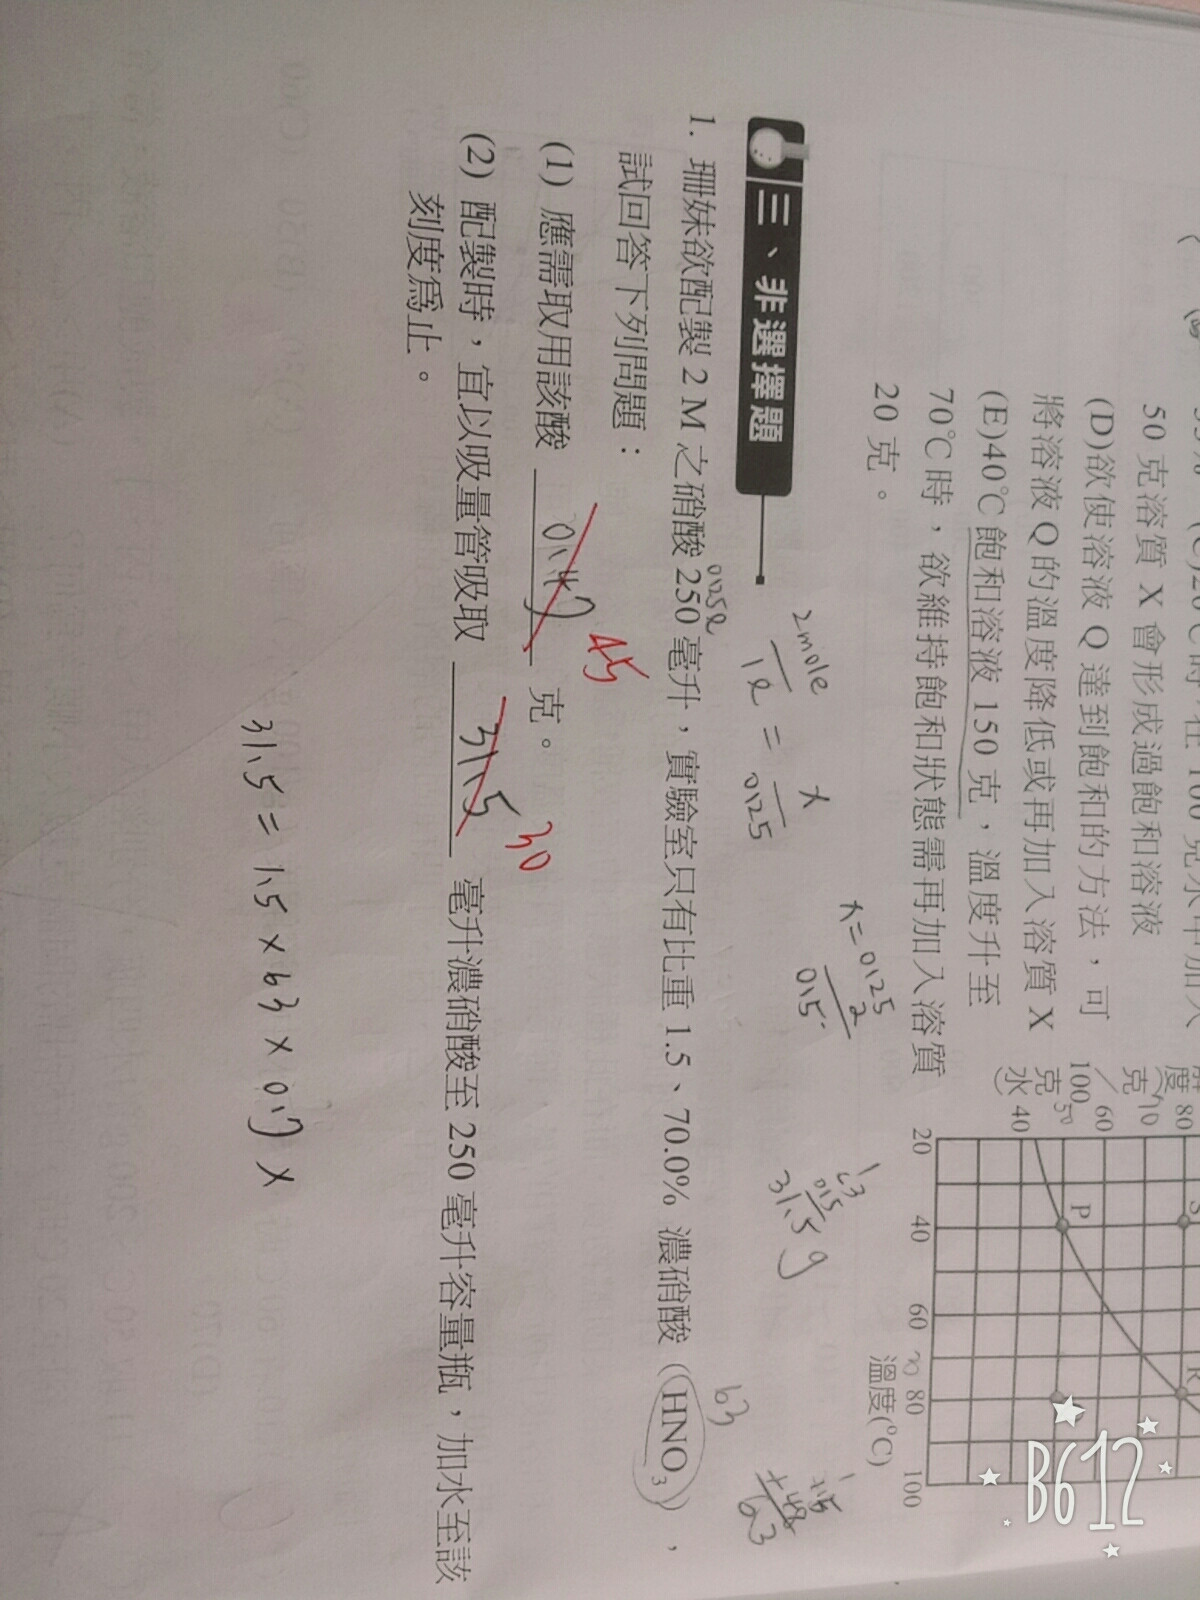 50 克溶質 X 會形成過飽和溶液
(D)欲使溶液 Q 達到飽和的方法，可
將溶液 Q 的溫度降低或再加入溶質 X
(E)40℃飽和溶液 150 克，溫度升至
70℃時，欲維持飽和狀態需再加入溶質
20 克。
度
克
100
克
水
80
70
60
50
40
S
P
R
20 40 60 80 100
溫度(℃)
三、非選擇題
2mole
1l
=
x
0.125
63
0.5
31.5g
63
1. 珊妹欲配製 2 M 之硝酸 250 毫升，實驗室只有比重 1.5、70.0% 濃硝酸（HNO3），
試回答下列問題：
(1) 應需取用該酸 45 克。
(2) 配製時，宜以吸量管吸取 31.5 30 毫升濃硝酸至 250 毫升容量瓶，加水至該
刻度為止。
31.5 = 1.5 × 63 × 0.7 ×
B612